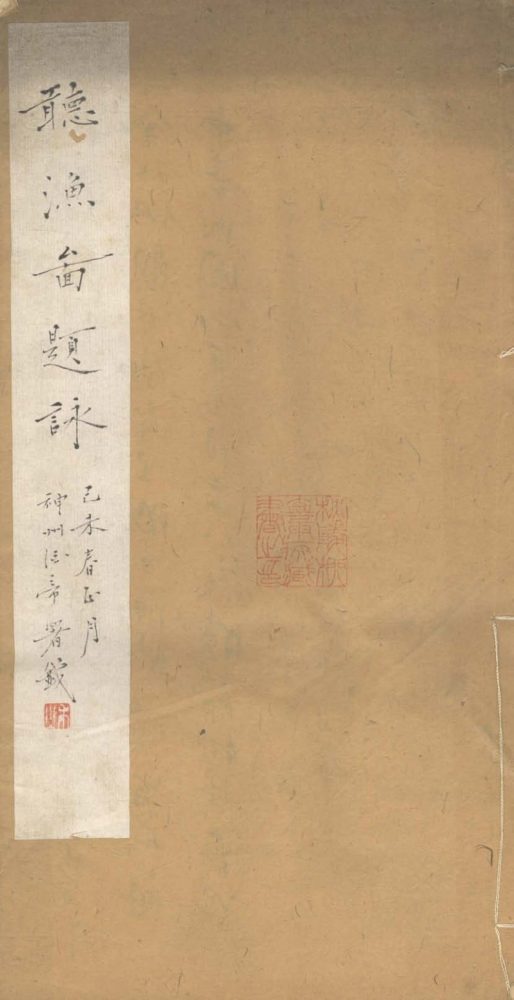 聽漁啚題詠
己未春正月
神州酒帝署籤